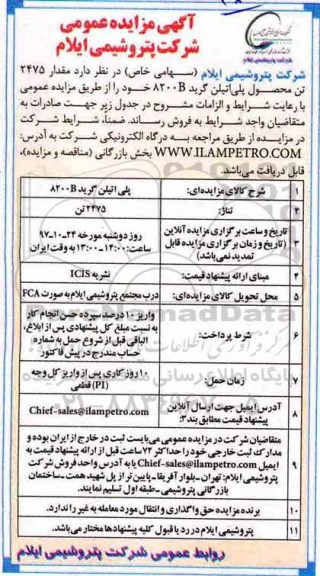 آگهی مزایده عمومی
شرکت پتروشیمی ایلام
شرکت پتروشیمی ایلام (سهامی خاص) در نظر دارد مقدار ۲۴۷۵
تن محصول پلی‌اتیلن گرید ۸۲۰۰B خود را از طریق مزایده عمومی
با رعایت شرایط و الزامات مشروح در جدول زیر جهت صادرات به
متقاضیان واجد شرایط به فروش رساند. ضمناً، شرایط شرکت
در مزایده از طریق مراجعه به درگاه الکترونیکی شرکت به آدرس:
WWW.ILAMPETRO.COM بخش بازرگانی (مناقصه و مزایده)،
قابل دریافت می‌باشد.
۱ شرح کالای مزایده‌ای: پلی اتیلن گرید ۸۲۰۰B
۲ تناژ: ۲۴۷۵ تن
۳ تاریخ و ساعت برگزاری مزایده آنلاین (تاریخ و زمان برگزاری مزایده قابل تمدید نمی‌باشد) روز دوشنبه مورخه ۲۴-۱۰-۹۷ ساعت: ۱۴:۰۰-۱۳:۰۰ به وقت ایران
۴ مبنای ارائه پیشنهاد قیمت: نشریه ICIS
۵ محل تحویل کالای مزایده‌ای: درب مجتمع پتروشیمی ایلام به صورت FCA
۶ شرط پرداخت: واریز ۱۰ درصد سپرده حسن انجام کار
به نسبت مبلغ کل پیشنهادی پس از ابلاغ،
الباقی قبل از شروع حمل به شماره
حساب مندرج در پیش فاکتور
۷ زمان حمل: ۱۰ روز کاری پس از واریز کل وجه
(PI) قطعی
۸ آدرس ایمیل جهت ارسال آنلاین
پیشنهاد قیمت مطابق بند۳: Chief-sales@ilampetro.com
۹ متقاضیان شرکت در مزایده عمومی می‌بایست ثبت در خارج از ایران بوده و
مدارک ثبت خارجی خود را حداکثر ۷۲ ساعت قبل از ارائه پیشنهاد قیمت به
ایمیل Chief-sales@ilampetro.com یا به آدرس واحد فروش شرکت
پتروشیمی ایلام: تهران-بلوار آفریقا-پایین‌تر از پل شهید همت-ساختمان
بازرگانی پتروشیمی-طبقه اول تسلیم نمایند.
۱۰ برنده مزایده حق واگذاری و انتقال مورد معامله به غیر را ندارد.
۱۱ پتروشیمی ایلام در رد یا قبول کلیه پیشنهادها مختار می‌باشد.
روابط عمومی شرکت پتروشیمی ایلام